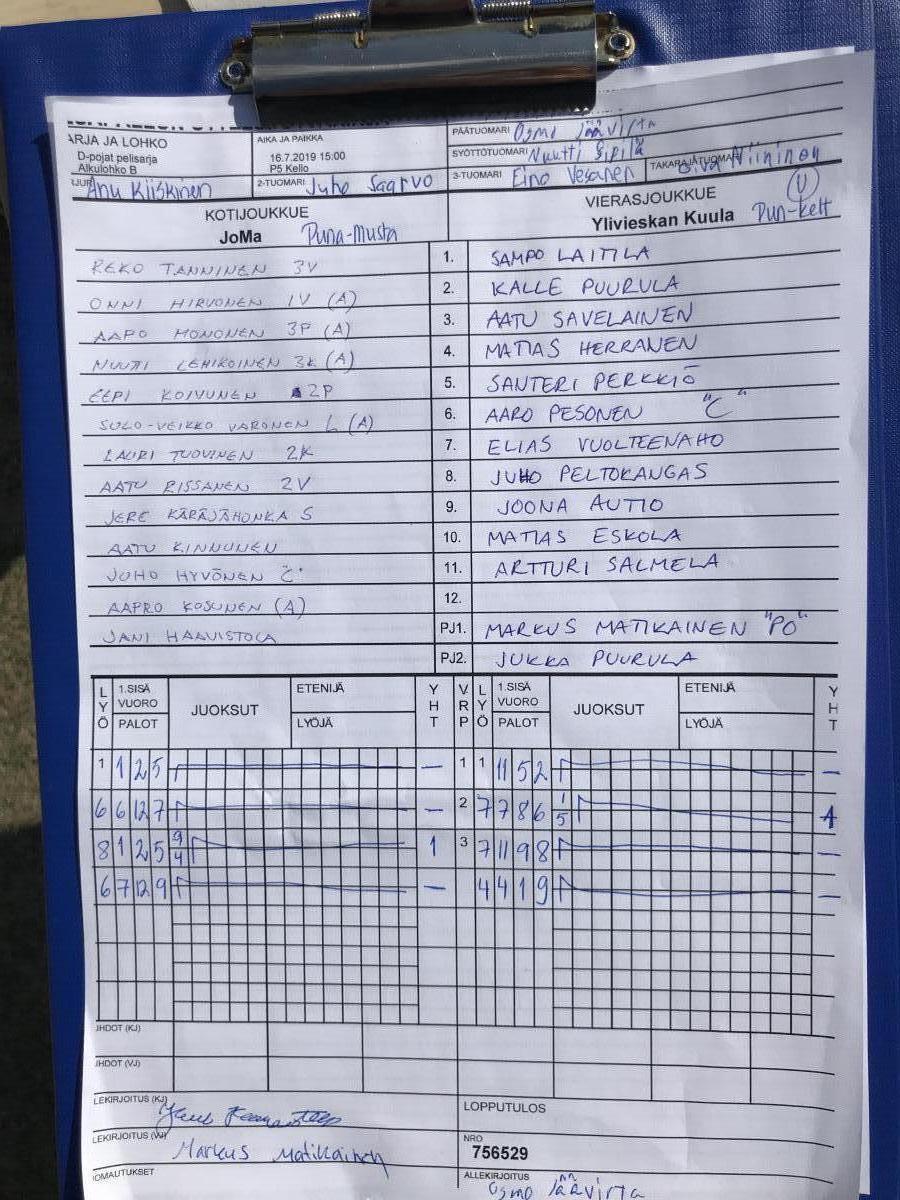 ARJA JA LOHKO
D-pojat pelisarja
Alkulohko B
AIKA JA PAIKKA
16.7.2019 15:00
P5 Kello
PÄÄTUOMARI Osmo Jäävirta
SYÖTTÖTUOMARI Nuutti Sipilä
TAKARAJATUOMARI Oiva Niininen
TJURI Anu Kiiskinen
2-TUOMARI Juho Saarvo
3-TUOMARI Eino Vesanen
KOTIJOUKKUE
JoMa Puna-Musta
VIERASJOUKKUE
Ylivieskan Kuula Pun-kelt
U
REKO TANNINEN 3V 1. SAMPO LAITILA
ONNI HIRVONEN 1V (A) 2. KALLE PUURULA
AAPO MONONEN 3P (A) 3. AATU SAVELAINEN
NUUTTI LEHIKOINEN 3K (A) 4. MATIAS HERRANEN
EEPI KOIVUNEN 2P 5. SANTERI PERKKIÖ
SULO-VEIKKO VARONEN L (A) 6. AARO PESONEN "C"
LAURI TUOVINEN 2K 7. ELIAS VUOLTEENAHO
AATU RISSANEN 2V 8. JUHO PELTOKANGAS
JERE KÄRÄJÄHONKA S 9. JOONA AUTIO
AATU KINNUNEN 10. MATIAS ESKOLA
JUHO HYVÖNEN "C" 11. ARTTURI SALMELA
AAPRO KOSUNEN (A) 12.
JANI HAAVISTOLA PJ1. MARKUS MATIKAINEN "PO"
PJ2. JUKKA PUURULA
LYÖ 1.SISÄ VUORO PALOT JUOKSUT ETENIJÄ LYÖJÄ YHT VRP LYÖ 1.SISÄ VUORO PALOT JUOKSUT ETENIJÄ LYÖJÄ YHT
1 1 2 5 — 1 1 11 5 2 —
6 6 12 7 — 2 7 7 8 6 1/5 1
8 1 2 5 9/4 1 3 7 11 9 8 —
6 7 12 9 — 4 4 1 9 —
JHDOT (KJ)
JHDOT (VJ)
LEKIRJOITUS (KJ)
LOPPUTULOS
LEKIRJOITUS (VJ) Markus Matikainen
NRO
756529
OMAUTUKSET
ALLEKIRJOITUS
Osmo Jäävirta